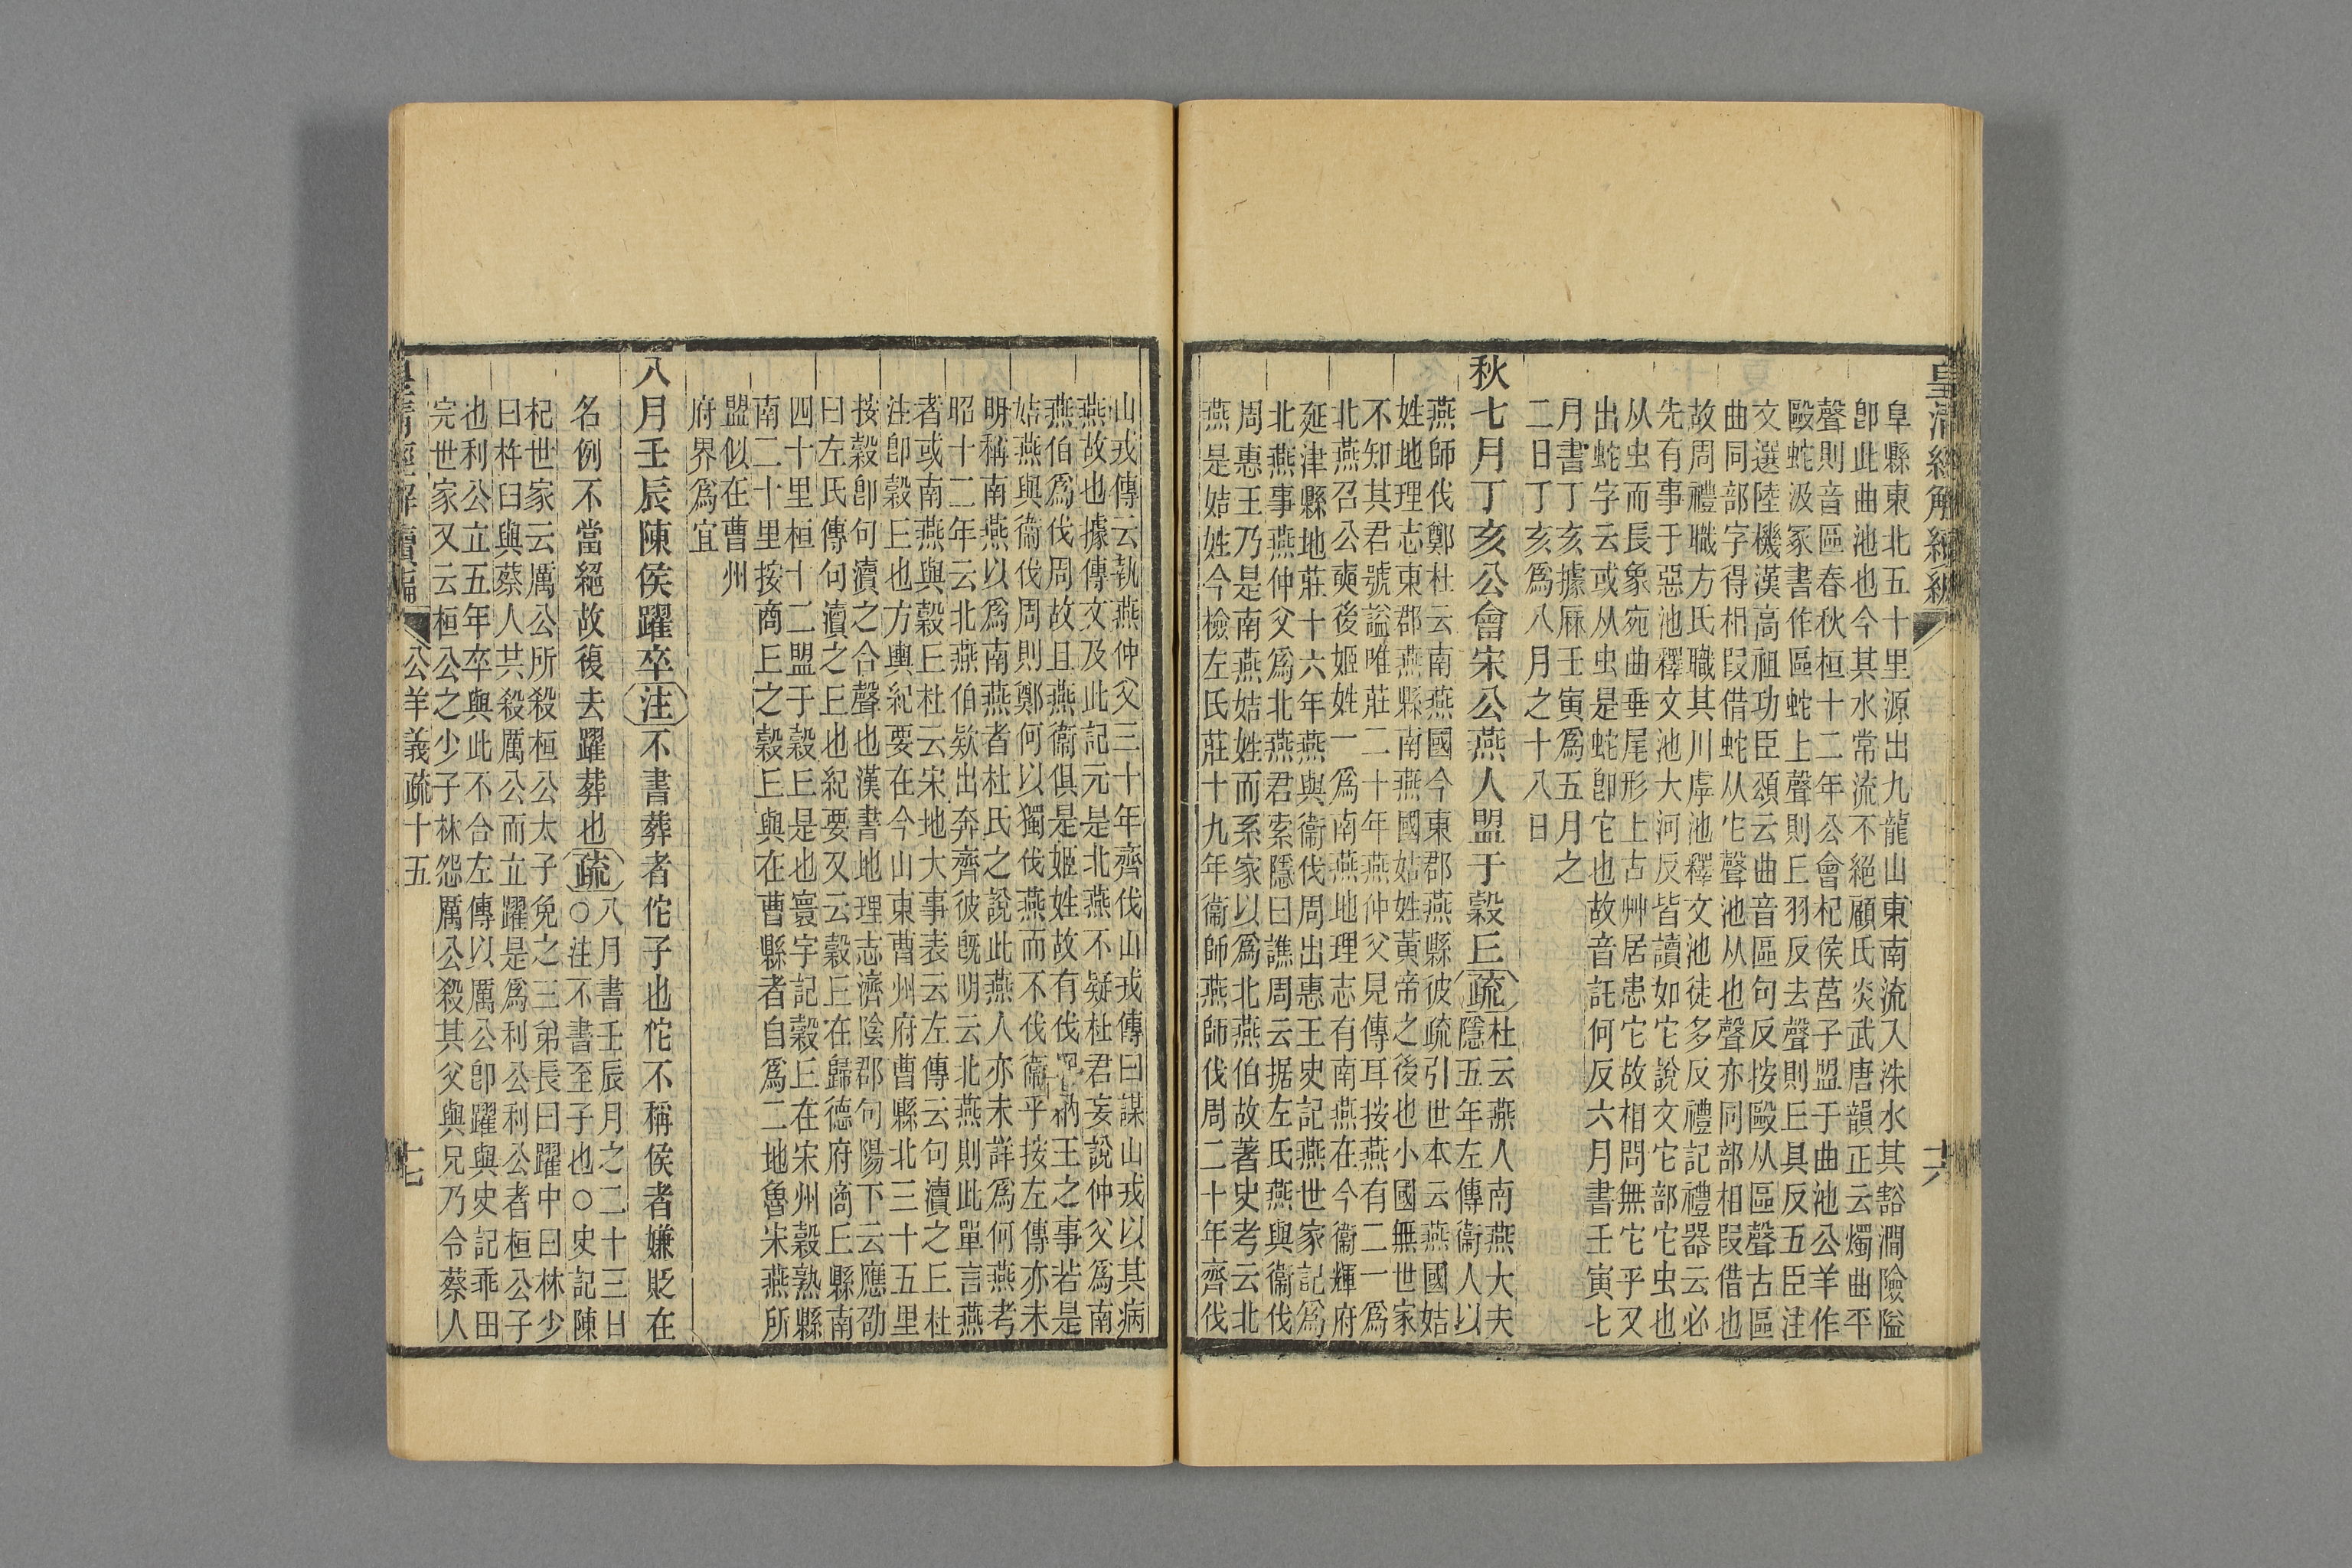 皇清經解續編
十六
阜縣東北五十里源出九龍山東南流入洙水其豁澗險隘
卽此曲池也今其水常流不絕顧氏炎武唐韻正云燭曲平
聲則音區春秋桓十二年公會杞侯莒子盟于曲池公羊作
毆蛇汲冢書作區蛇上聲則㠪羽反去聲則㠪具反五臣注
文選陸機漢高祖功臣頌云曲音區句反按毆从區聲古區
曲同部字得相叚借蛇从它聲池从也聲亦同部相叚借也
故周禮職方氏職其川虖池釋文池徒多反禮記禮器云必
先有事于惡池釋文池大河反皆讀如它說文它部它虫也
从虫而長象宛曲垂尾形上古艸居患它故相問無它乎又
出蛇字云或从虫是蛇卽它也故音託何反六月書壬寅七
月書丁亥據厤壬寅爲五月之
二日丁亥爲八月之十八日
秋七月丁亥公會宋公燕人盟于穀㠪
疏
杜云燕人南燕大夫
隱五年左傳衞人以
燕師伐鄭杜云南燕國今東郡燕縣彼疏引世本云燕國姞
姓地理志東郡燕縣南燕國姞姓黃帝之後也小國無世家
不知其君號謚唯莊二十年燕仲父見傳耳按燕有二一爲
北燕召公奭後姬姓一爲南燕地理志有南燕在今衞輝府
延津縣地莊十六年燕與衞伐周出惠王史記燕世家記爲
北燕事燕仲父爲北燕君索隱曰譙周云据左氏燕與衞伐
周惠王乃是南燕姞姓而系家以爲北燕伯故著史考云北
燕是姞姓今檢左氏莊十九年衞師燕師伐周二十年齊伐
山戎傳云執燕仲父三十年齊伐山戎傳曰謀山戎以其病
燕故也據傳文及此記元是北燕不疑杜君妄說仲父爲南
燕伯爲伐周故且燕衞俱是姬姓故有伐周納王之事若是
姞燕與衞伐周則鄭何以獨伐燕而不伐衞乎按左傳亦未
明稱南燕以爲南燕者杜氏之說此燕人亦未詳爲何燕考
昭十二年云北燕伯欵出奔齊彼旣明云北燕則此單言燕
者或南燕與穀㠪杜云宋地大事表云左傳云句瀆之㠪杜
注卽穀㠪也方輿紀要在今山東曹州府曹縣北三十五里
按穀卽句瀆之合聲也漢書地理志濟陰郡句陽下云應劭
曰左氏傳句瀆之㠪也紀要又云穀㠪在歸德府商㠪縣南
四十里桓十二盟于穀㠪是也寰宇記穀㠪在宋州穀熟縣
南二十里按商㠪之穀㠪與在曹縣者自爲二地魯宋燕所
盟似在曹州
府界爲宜
八月壬辰陳侯躍卒
注
不書葬者佗子也佗不稱侯者嫌貶在
名例不當絕故復去躍葬也
疏
八月書壬辰月之二十三日
○注不書至子也○史記陳
杞世家云厲公所殺桓公太子免之三弟長曰躍中曰林少
曰杵臼與蔡人共殺厲公而立躍是爲利公利公者桓公子
也利公立五年卒與此不合左傳以厲公卽躍與史記乖田
完世家又云桓公之少子林怨厲公殺其父與兄乃令蔡人
皇清經解續編
公羊義疏十五
十七